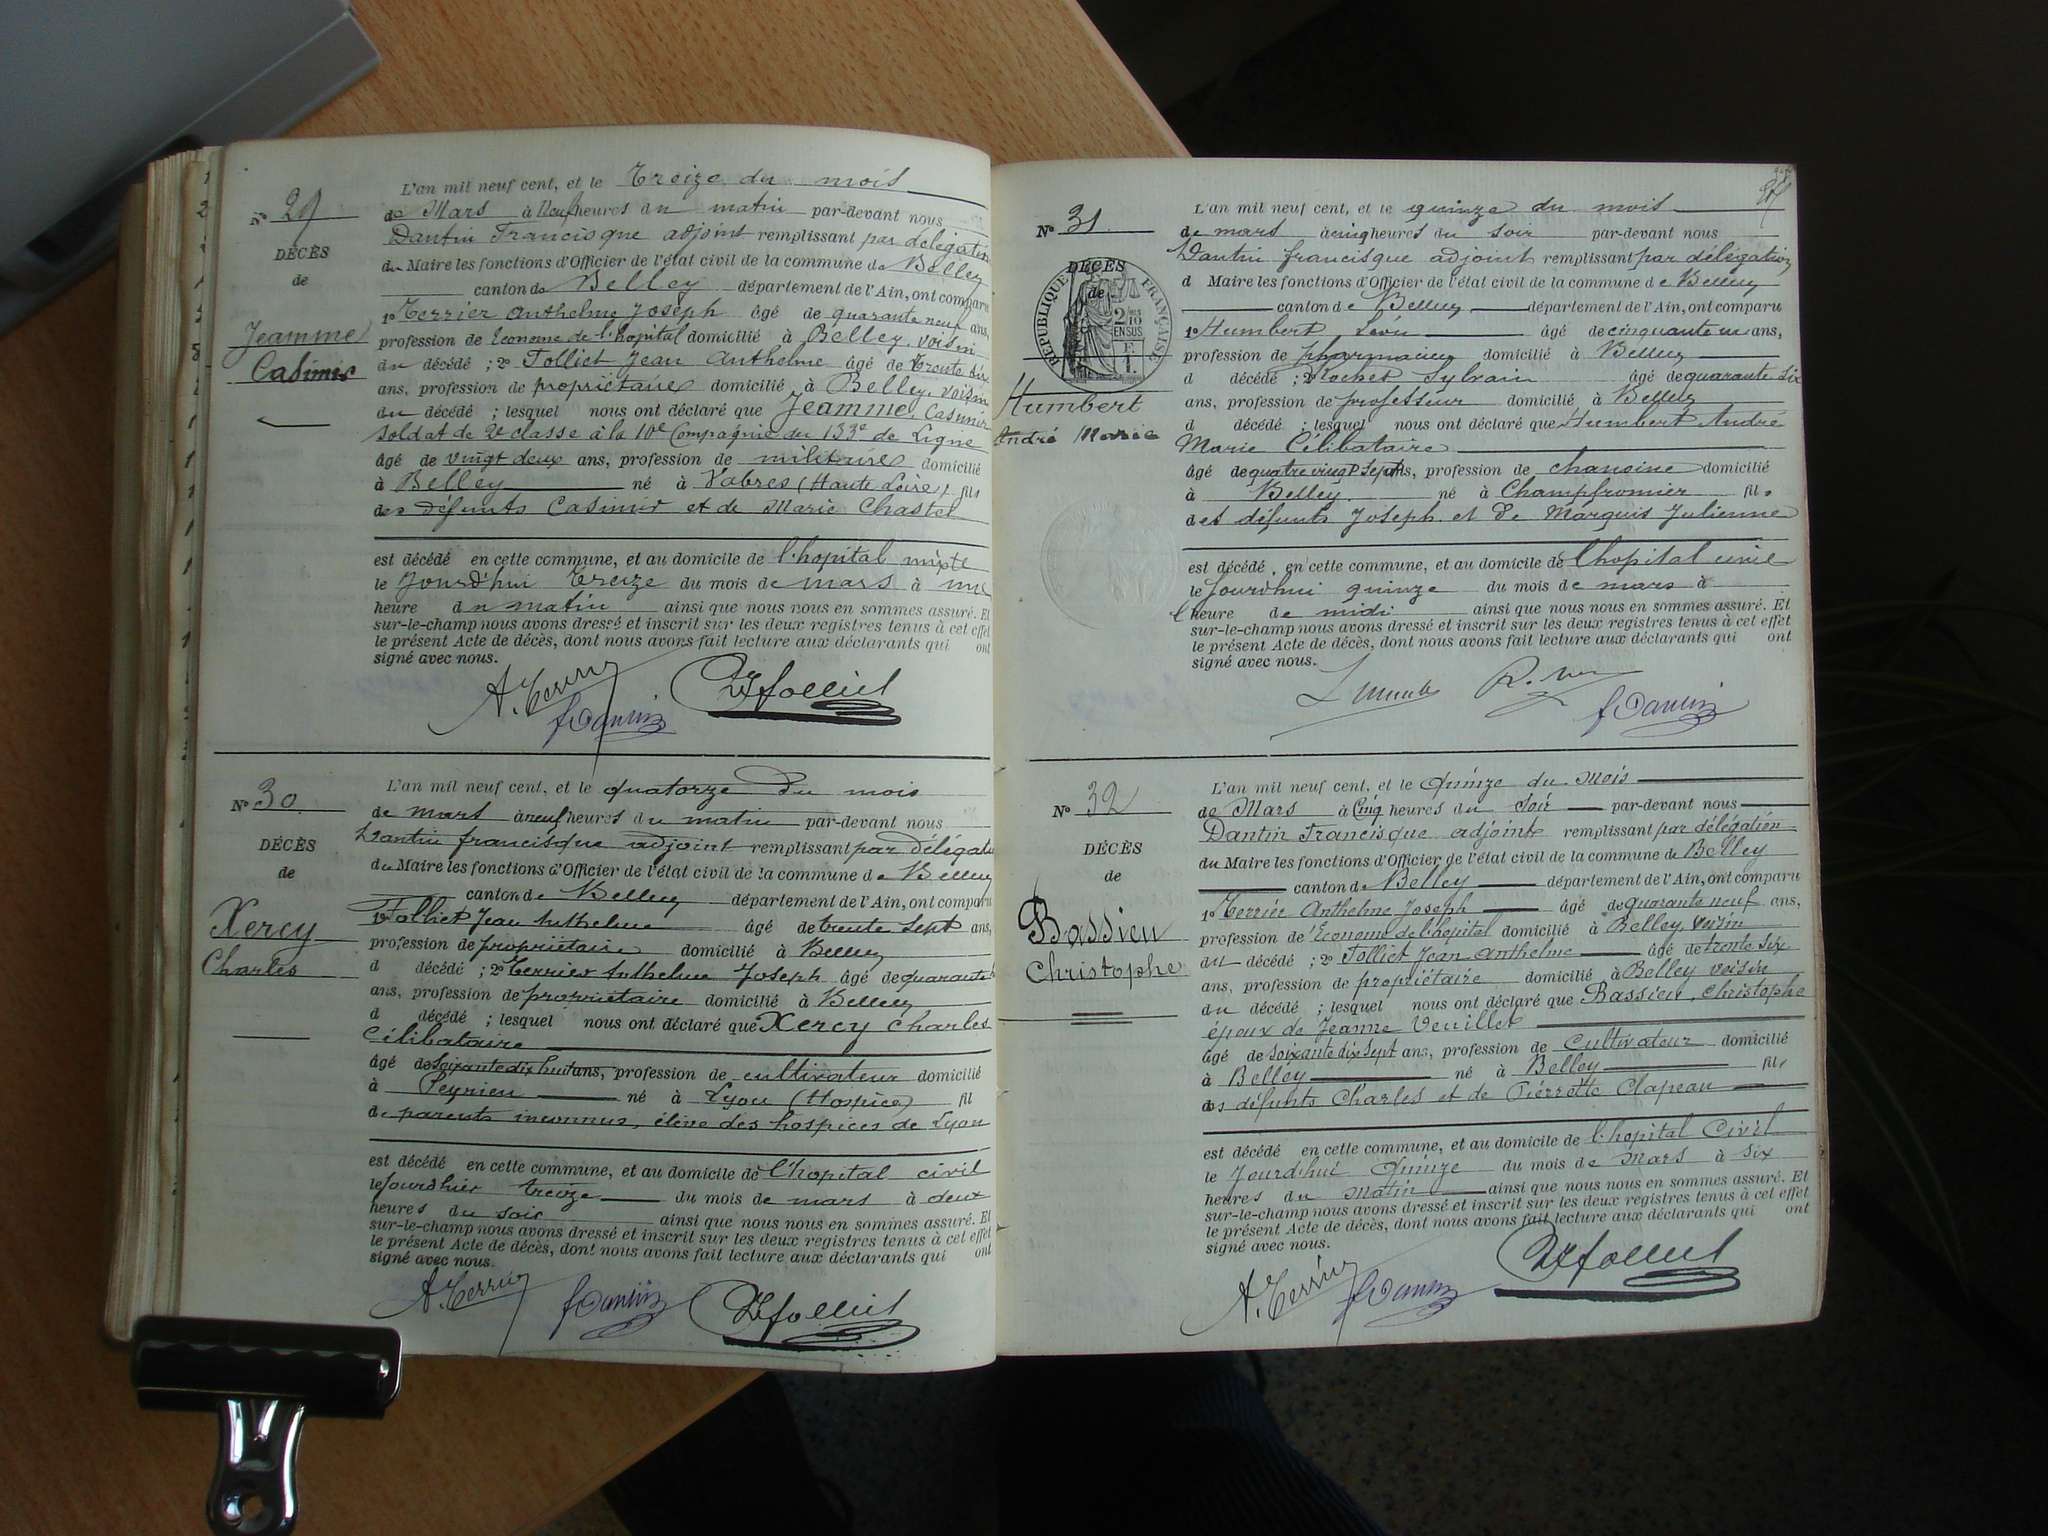 Nº 29
DÉCÈS
de
Jeamme
Casimir
L'an mil neuf cent, et le Treize du mois
de Mars à Neuf heures du matin par-devant nous
Dantin Francisque adjoint remplissant par délégation
du Maire les fonctions d'Officier de l'état civil de la commune de Belley
canton de Belley département de l'Ain, ont comparu
1º Terrier Anthelme Joseph âgé de quarante neuf ans,
profession de Econome de l'hopital domicilié à Belley, voisin
du décédé ; 2º Tolliet Jean Anthelme âgé de Trente six
ans, profession de propriétaire domicilié à Belley, voisin
du décédé ; lesquel nous ont déclaré que Jeamme Casimir
soldat de 2e classe à la 10e Compagnie du 133e de Ligne
âgé de vingt deux ans, profession de militaire domicilié
à Belley né à Vabres (Haute Loire), fils
des défunts Casimir et de Marie Chastel
est décédé en cette commune, et au domicile de l'hopital mixte
le Jourd'hui treize du mois de mars à une
heure du matin ainsi que nous nous en sommes assuré. Et
sur-le-champ nous avons dressé et inscrit sur les deux registres tenus à cet effet
le présent Acte de décès, dont nous avons fait lecture aux déclarants qui ont
signé avec nous.
A. Terrier
F Dantin
Tolliet
Nº 30
DÉCÈS
de
Xercy
Charles
L'an mil neuf cent, et le quatorze du mois
de mars à neuf heures du matin par-devant nous
Dantin francisque adjoint remplissant par délégation
du Maire les fonctions d'Officier de l'état civil de la commune de Belley
canton de Belley département de l'Ain, ont comparu
1º Tolliet Jean Anthelme âgé de trente sept ans,
profession de propriétaire domicilié à Belley
d décédé ; 2º Terrier Anthelme Joseph âgé de quarante
ans, profession de propriétaire domicilié à Belley
d décédé ; lesquel nous ont déclaré que Xercy Charles
Célibataire
âgé de soixante dix huit ans, profession de cultivateur domicilié
à Peyrieu né à Lyon (Hospice) fil
de parents inconnus, élève des hospices de Lyon
est décédé en cette commune, et au domicile de l'hopital civil
le jourd'hier treize du mois de mars à deux
heures du soir ainsi que nous nous en sommes assuré. Et
sur-le-champ nous avons dressé et inscrit sur les deux registres tenus à cet effet
le présent Acte de décès, dont nous avons fait lecture aux déclarants qui ont
signé avec nous.
A. Terrier
F Dantin
Tolliet
Nº 31
DÉCÈS
de
RÉPUBLIQUE FRANÇAISE
2/10
EN SUS
Humbert
André Marie
L'an mil neuf cent, et le quinze du mois
de mars à cinq heures du soir par-devant nous
Dantin francisque adjoint remplissant par délégation
d Maire les fonctions d'Officier de l'état civil de la commune de Belley
canton de Belley département de l'Ain, ont comparu
1º Humbert Léon âgé de cinquante un ans,
profession de pharmacien domicilié à Belley
d décédé ; 2º Rochet Sylvain âgé de quarante six
ans, profession de professeur domicilié à Belley
d décédé ; lesquel nous ont déclaré que Humbert André
Marie Célibataire
âgé de quatre vingt sept ans, profession de chanoine domicilié
à Belley né à Champfromier fils
des défunts Joseph et de Marquis Julienne
est décédé en cette commune, et au domicile de l'hopital civil
le jourd'hui quinze du mois de mars à
l'heure de midi ainsi que nous nous en sommes assuré. Et
sur-le-champ nous avons dressé et inscrit sur les deux registres tenus à cet effet
le présent Acte de décès, dont nous avons fait lecture aux déclarants qui ont
signé avec nous.
F Dantin
Nº 32
DÉCÈS
de
Bassieu
Christophe
L'an mil neuf cent, et le Quinze du Mois
de Mars à Cinq heures du Soir par-devant nous
Dantin Francisque adjoint remplissant par délégation
du Maire les fonctions d'Officier de l'état civil de la commune de Belley
canton de Belley département de l'Ain, ont comparu
1º Terrier Anthelme Joseph âgé de quarante neuf ans,
profession de Econome de l'hopital domicilié à Belley, voisin
du décédé ; 2º Tolliet Jean Anthelme âgé de trente six
ans, profession de propriétaire domicilié à Belley voisin
du décédé ; lesquel nous ont déclaré que Bassieu, Christophe
époux de Jeanne Veuillet
âgé de soixante dix sept ans, profession de Cultivateur domicilié
à Belley né à Belley fils
des défunts Charles et de Pierrette Clapeau
est décédé en cette commune, et au domicile de l'hopital Civil
le Jourd'hui Quinze du mois de Mars à six
heures du Matin ainsi que nous nous en sommes assuré. Et
sur-le-champ nous avons dressé et inscrit sur les deux registres tenus à cet effet
le présent Acte de décès, dont nous avons fait lecture aux déclarants qui ont
signé avec nous.
A. Terrier
F Dantin
Tolliet